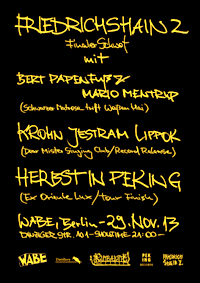 FRIEDRICHSHAIN 2
Finaler Schwof
mit
BERT PAPENFUẞ &
MARIO MENTRUP
(Schwarzer Matrose trifft Weißen Hai)
KROHN JESTRAM LIPPOK
(Dear Mister Singing Club/Record Release)
HERBST IN PEKING
(Ex Oriente Lux/Tour Finish)
WABE, Berlin - 29. NOV. 13
DANZIGER STR. 101 - SHOWTIME 21:00 -
WABE
PEKING
FRIEDRICHSHAIN 2.